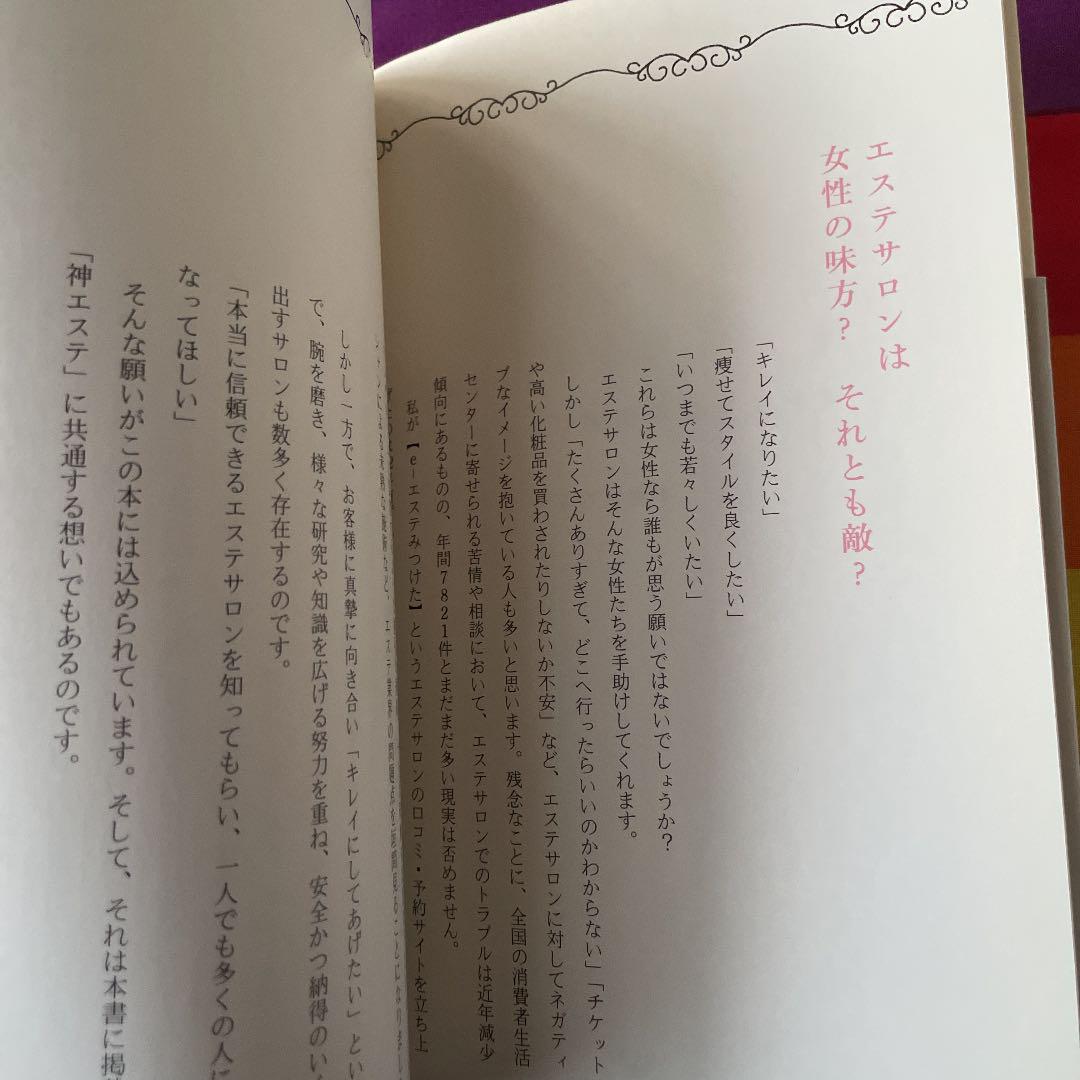 エステサロンは
女性の味方? それとも敵?
「キレイになりたい」
「痩せてスタイルを良くしたい」
「いつまでも若々しくいたい」
これらは女性なら誰もが思う願いではないでしょうか?
エステサロンはそんな女性たちを手助けしてくれます。
しかし「たくさんありすぎて、どこへ行ったらいいのかわからない」「チケット
や高い化粧品を買わされたりしないか不安」など、エステサロンに対してネガティ
ブなイメージを抱いている人も多いと思います。残念なことに、全国の消費者生活
センターに寄せられる苦情や相談において、エステサロンでのトラブルは近年減少
傾向にあるものの、年間7821件とまだまだ多い現実は否めません。
私が【e-エステみつけた】というエステサロンの口コミ・予約サイトを立ち上
しかし一方で、お客様に真摯に向き合い「キレイにしてあげたい」とい
で、腕を磨き、様々な研究や知識を広げる努力を重ね、安全かつ納得のい
出すサロンも数多く存在するのです。
「本当に信頼できるエステサロンを知ってもらい、一人でも多くの人に
なってほしい」
そんな願いがこの本には込められています。そして、それは本書に掲
「神エステ」に共通する想いでもあるのです。